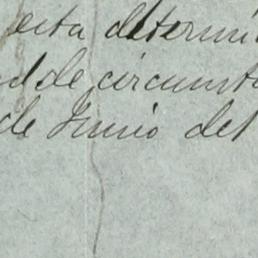 esta determi
d de circunst
de Junio del